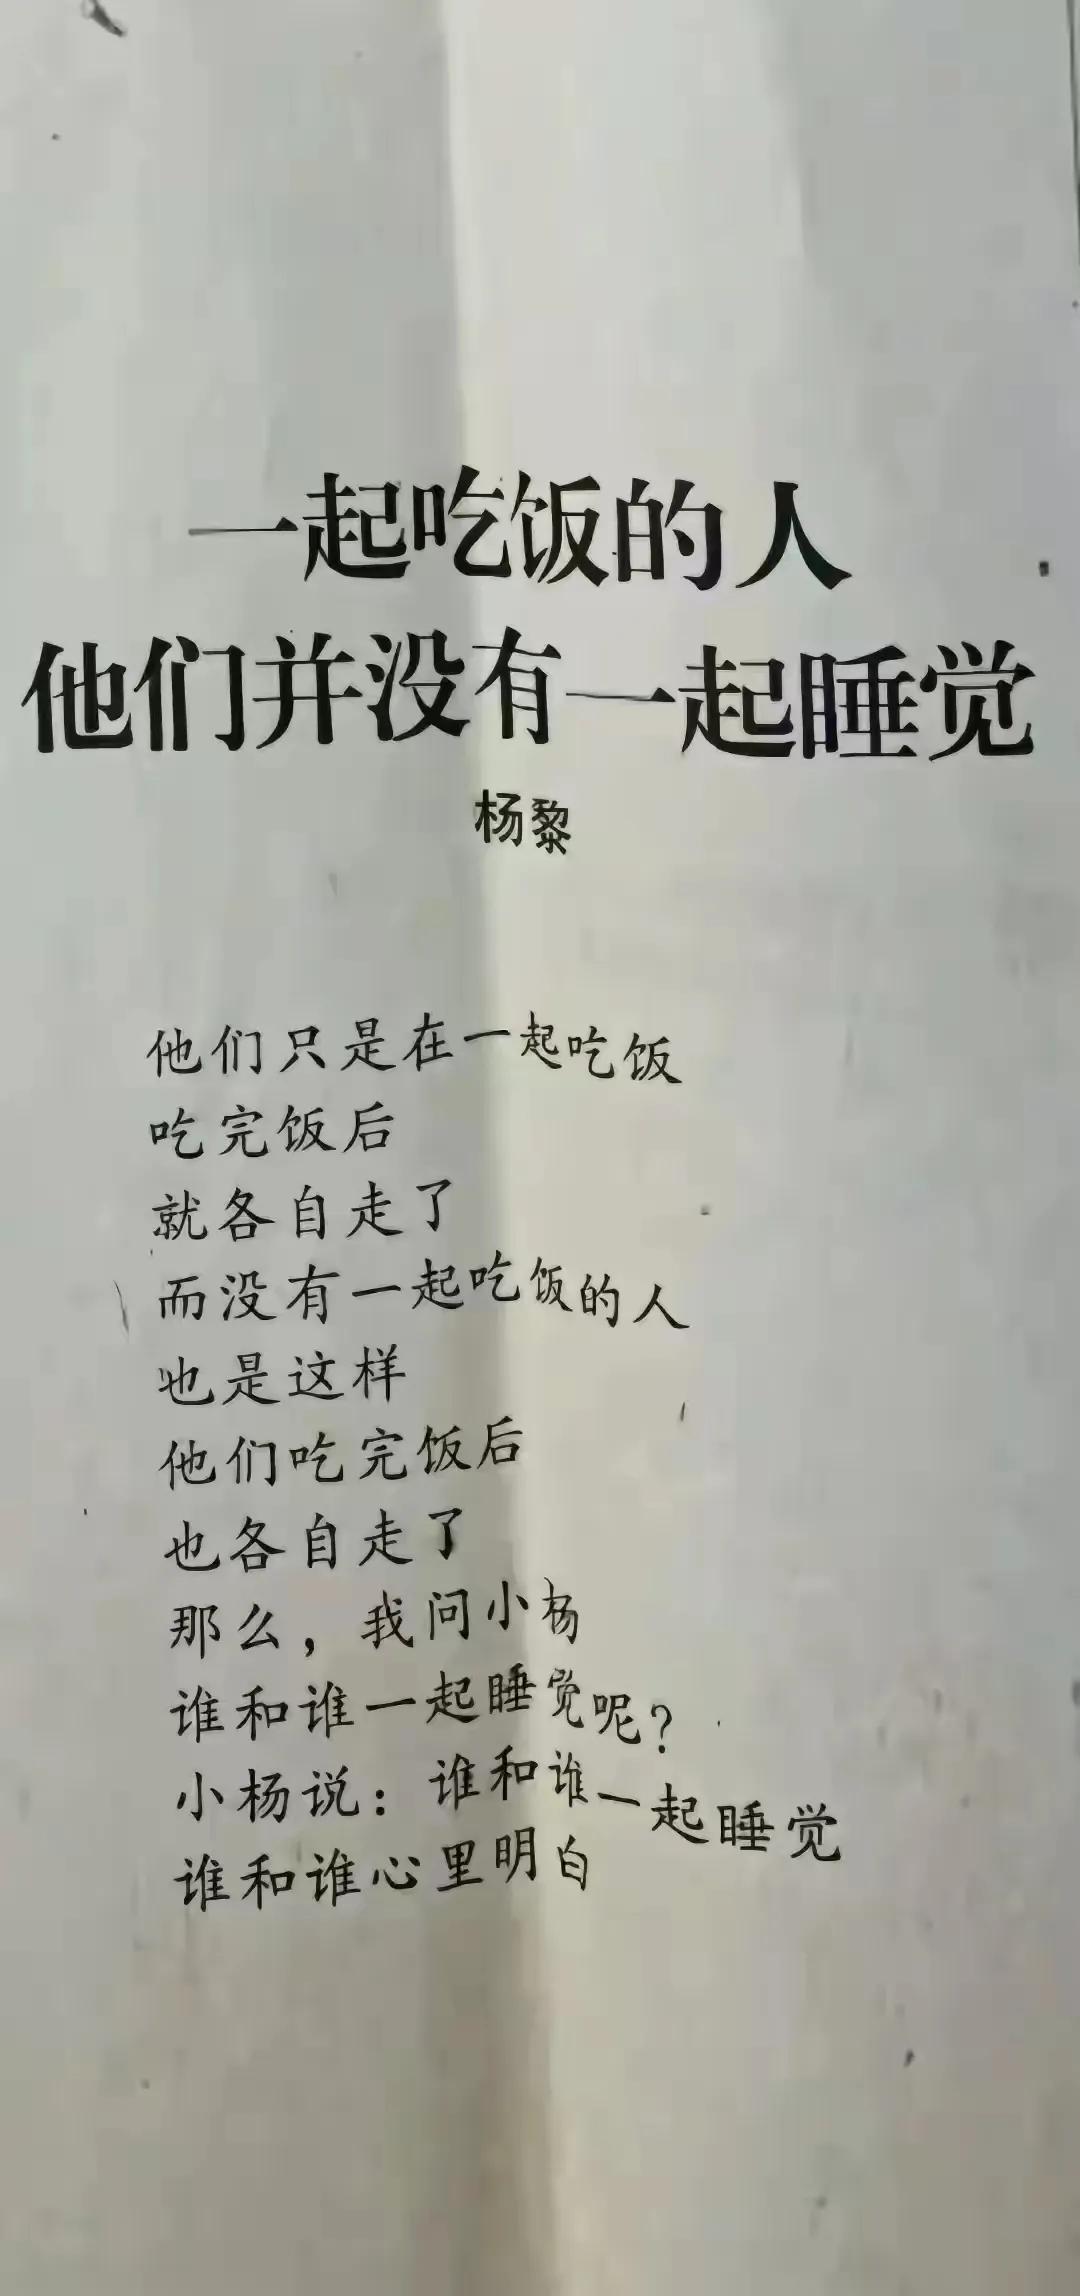 一起吃饭的人
他们并没有一起睡觉
杨黎
他们只是在一起吃饭
吃完饭后
就各自走了
而没有一起吃饭的人
也是这样
他们吃完饭后
也各自走了
那么，我问小杨
谁和谁一起睡觉呢？
小杨说：谁和谁一起睡觉
谁和谁心里明白